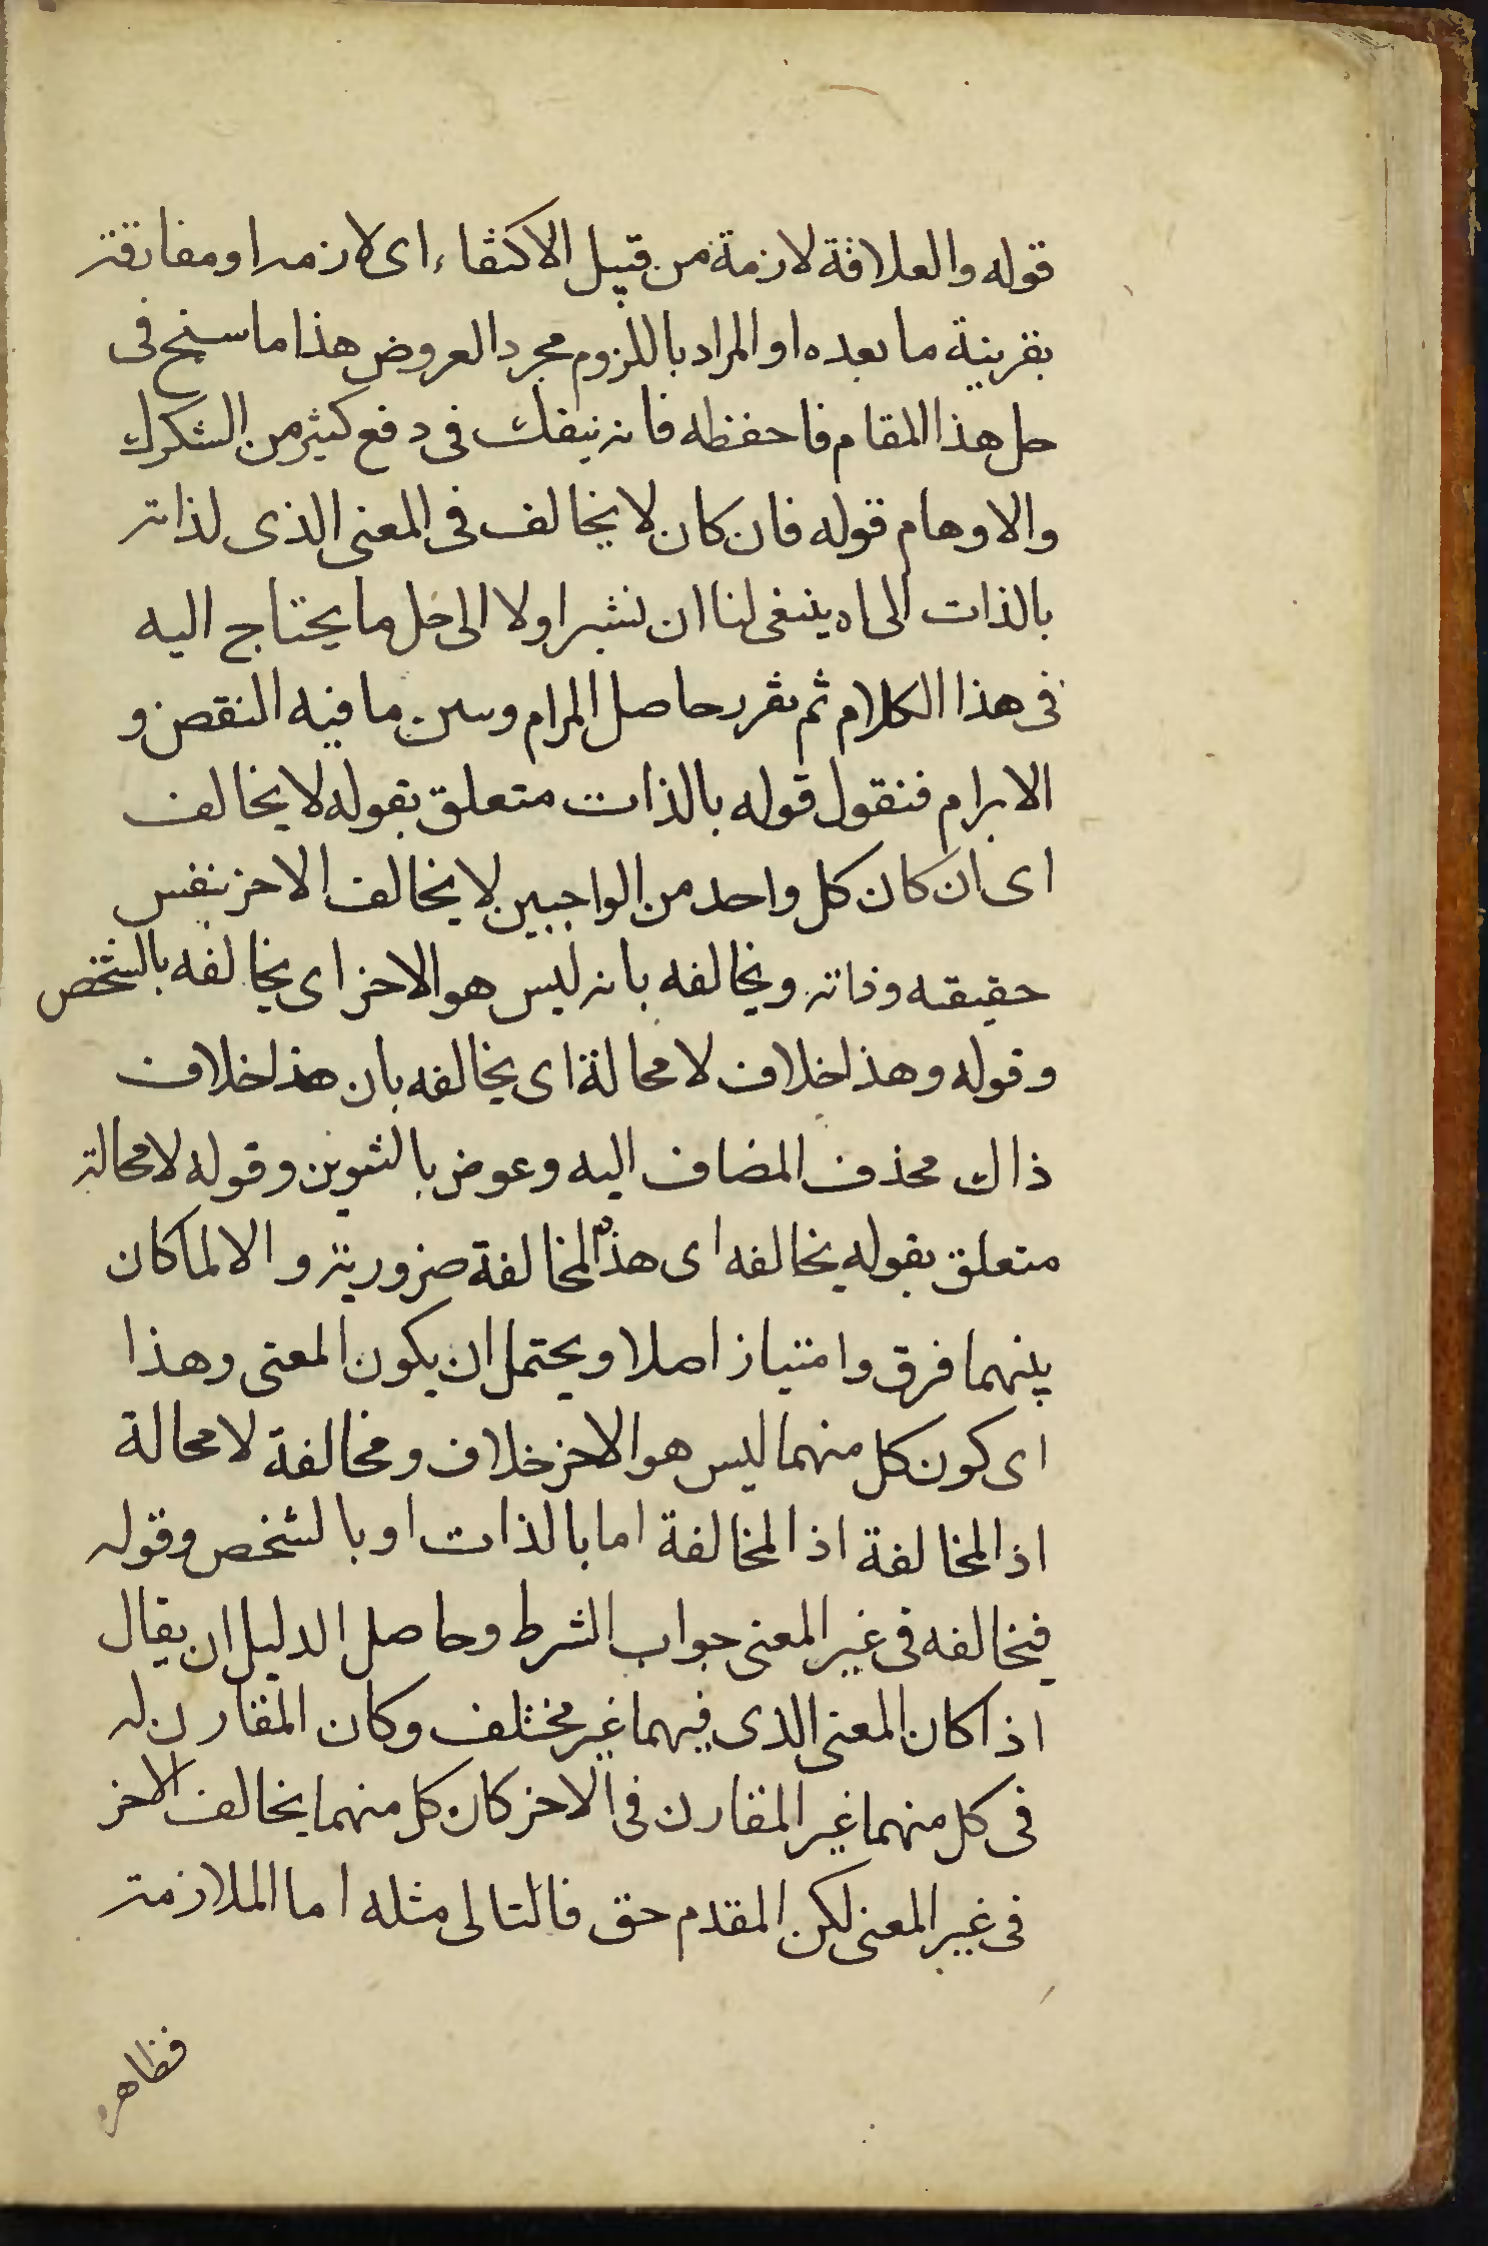 قوله والعلاقة لازمة من قبيل الاكتفاء اى لازمه او مفارقة
بقرينة ما بعده او المراد باللزوم مجرد العروض هذا ما سنح فى
حل هذا المقام فاحفظه فانه ينفعك فى دفع كثير من الشكوك
والاوهام قوله فان كان لا يخالف فى المعنى الذى لذاته
بالذات الى اه ينبغى لنا ان نشير اولا الى حل ما يحتاج اليه
فى هذا الكلام ثم نقرر حاصل المرام ونبين ما فيه النقض و
الابرام فنقول قوله بالذات متعلق بقوله لا يخالف
اى ان كان كل واحد من الواجبين لا يخالف الاخر بنفس
حقيقته وذاته ويخالفه بانه ليس هو الاخر اى يخالفه بالشخص
وقوله وهذا خلاف لا محالة اى يخالفه بان هذا خلاف
ذاك فحذف المضاف اليه وعوض بالتنوين وقوله لا محالة
متعلق بقوله يخالفه اى هذه المخالفة ضرورية والا لما كان
بينهما فرق وامتياز اصلا ويحتمل ان يكون المعنى وهذا
اى كون كل منهما ليس هو الاخر خلاف ومخالفة لا محالة
اذ المخالفة اذ المخالفة اما بالذات او بالشخص وقوله
فيخالفه فى غير المعنى جواب الشرط وحاصل الدليل ان يقال
اذا كان المعنى الذى فيهما غير مختلف وكان المقارن له
فى كل منهما غير المقارن فى الاخر كان كل منهما يخالف الاخر
فى غير المعنى لكن المقدم حق فالتالى مثله اما الملازمة
فظاهرة